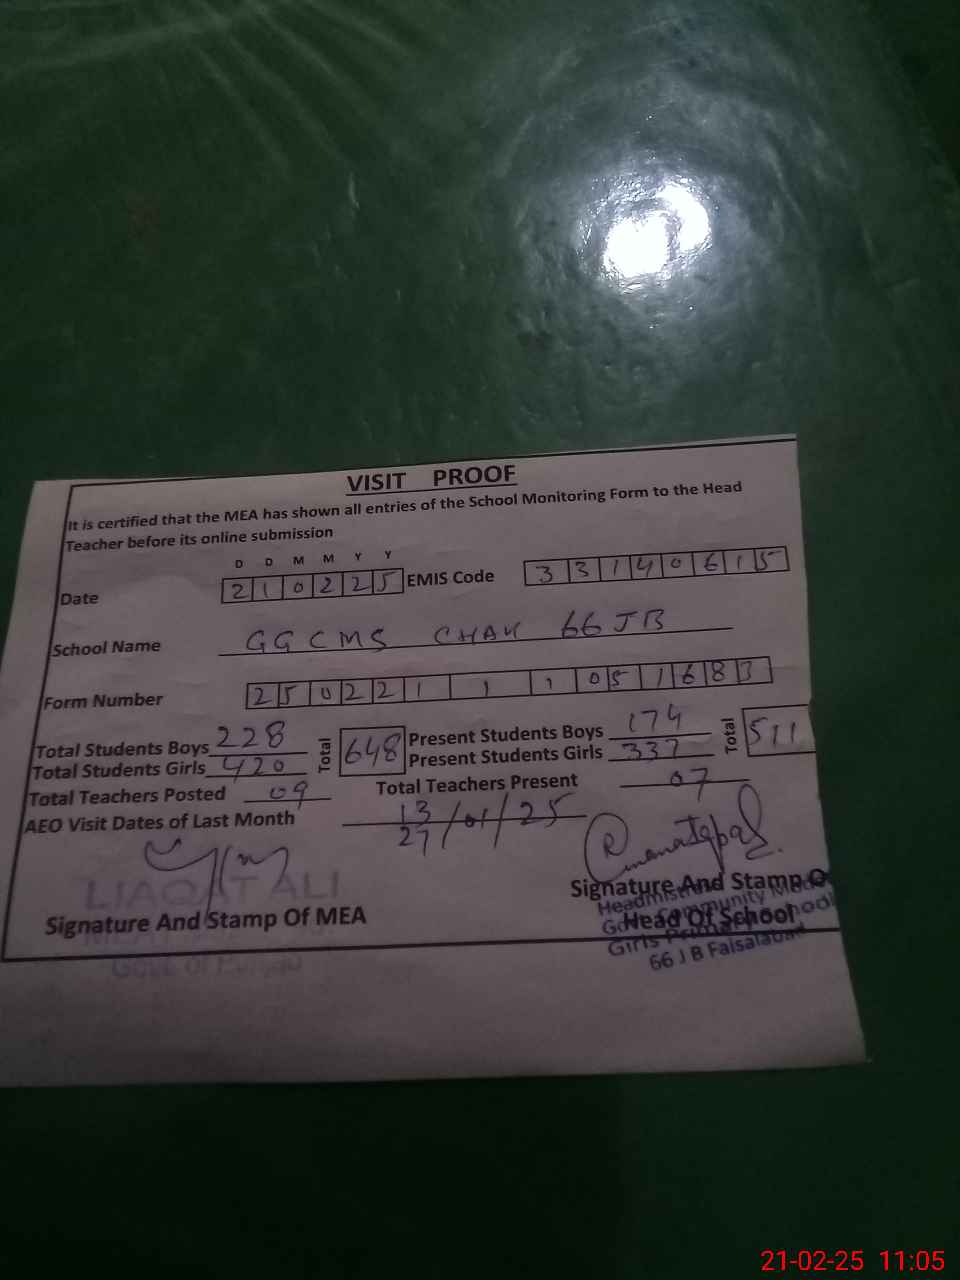 VISIT PROOF
It is certified that the MEA has shown all entries of the School Monitoring Form to the Head
Teacher before its online submission
D D M M Y Y
Date 210225 EMIS Code 33140615
School Name GGCMS CHAK 66 JB
Form Number 25022111051683
Total Students Boys 228 Total 648 Present Students Boys 174 Total 511
Total Students Girls 420 Present Students Girls 337
Total Teachers Posted 09 Total Teachers Present 07
AEO Visit Dates of Last Month 13 27/01/25
LIAQAT ALI
Signature And Stamp Of MEA
Govt of Punjab
Signature And Stamp O
Head Of School
Headmistress
Govt. Community Model
Girls Primary School
66 J B Faisalabad
21-02-25 11:05